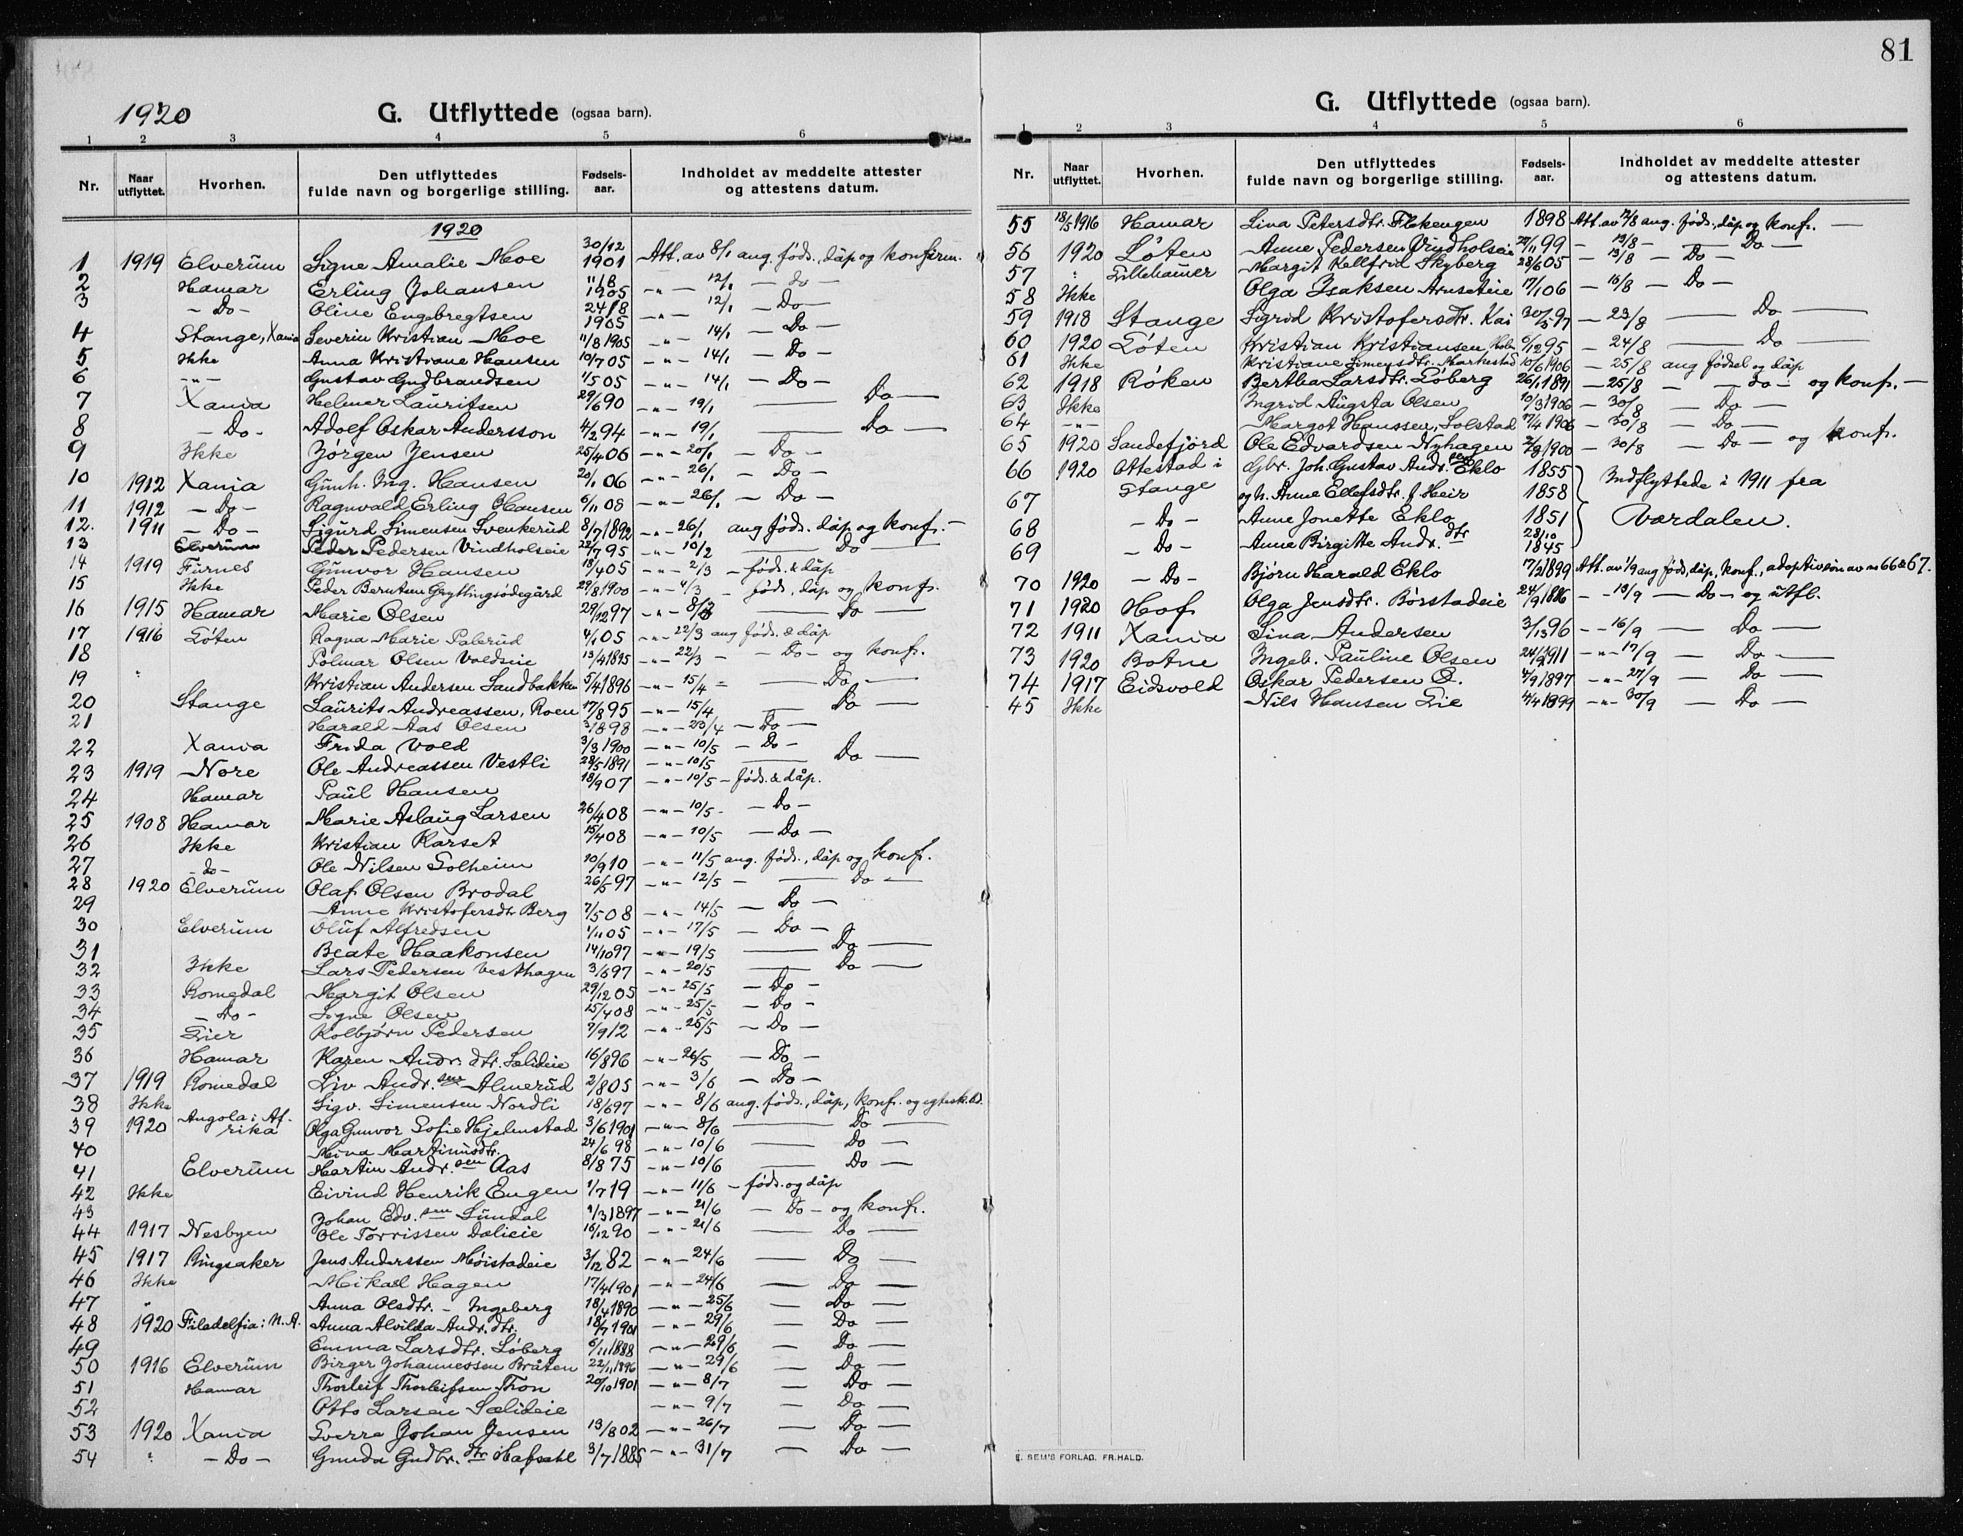 1920
G. Utflyttede (ogsaa barn).
1 2 3 4 5 6
Nr. Naar utflyttet. Hvorhen. Den utflyttedes fulde navn og borgerlige stilling. Fødsels-aar. Indholdet av meddelte attester og attestens datum.
1920
1 1919 Elverum Signe Amalie Moe 30/12 1901 Att. av 8/1 ang. føds., dåp og konfirm.
2 Hamar Erling Johansen 11/8 1905 — " — 12/1 — Do —
3 — Do — Oline Engebregtsen 24/8 1905 — " — 12/1 — Do —
4 Stange, Xania Severin Kristian Moe 11/8 1905 — " — 14/1 — Do —
5 Ikke Anna Kristiane Hansen 10/7 05 — " — 14/1 — Do —
6 — " — Gustav Gudbrandsen 1/5 05 — " — 14/1 — Do —
7 Xania Helmer Lauritsen 29/6 90 — " — 19/1 — Do —
8 — Do — Adolf Oskar Andersson 4/2 94 — " — 19/1 — Do —
9 Ikke Jørgen Jensen 25/4 06 — " — 20/1 — Do —
10 1912 Xania Gunh. Ing. Hansen 20/1 06 — " — 26/1 — Do —
11 1912 — Do — Ragnvald Erling Hansen 6/11 08 — " — 26/1 — Do —
12. 1911 — Do — Sigurd Simensen Svenkerud 8/7 1892 — " — 26/1 ang føds. dåp og konf. —
13 Elverum Peder Pedersen Vindholseie 22/7 95 — " — 10/2 — Do —
14 1919 Furnes Gunvor Hansen 18/4 05 — " — 2/3 — føds. & dåp
15 Ikke Peder Berntsen Gryttingsødegård 29/8 1900 — " — 4/3 — føds, dåp og konf.
16 1915 Hamar Marie Olsen 29/12 97 — " — 8/3 — Do —
17 1916 Løten Ragna Marie Palerud 4/1 05 — " — 22/3 ang føds. & dåp
18 Polmar Olsen Voldseie 13/4 1895 — " — 22/3 — — Do — og konf.
19 " Kristian Andersen Sandbakken 5/4 1896 — " — 15/4 — Do —
20 Stange Laurits Andreassen, Roen 17/8 95 — " — 15/4 — Do —
21 Harald Aas Olsen 3/1 898 — " — 23/4 — Do —
22 Xania Frida Vold 3/3 1900 — " — 10/5 — Do —
23 1919 Nore Ole Andreassen Vestli 28/5 1891 — " — 10/5 — Do —
24 Hamar Paul Hansen 18/9 07 — " — 10/5 — føds. & dåp.
25 1908 Hamar Marie Aslaug Larsen 26/4 08 — " — 10/5 — Do —
26 Ikke Kristian Karset 15/4 08 — " — 10/5 — Do —
27 — do — Ole Nilsen Solheim 10/9 10 — " — 11/5 ang. føds., dåp og konf.
28 1920 Elverum Olaf Olsen Brodal 26/5 97 — " — 12/5 — Do —
29 Anne Kristofersdtr. Berg 7/5 08 — " — 14/5 — Do —
30 Elverum Oluf Alfredsen 1/11 05 — " — 17/5 — Do —
31 Beate Haakonsen 14/10 97 — " — 19/5 — Do —
32 Ikke Lars Pedersen Vesthagen 3/6 97 — " — 20/5 — Do —
33 Romedal Margit Olsen 29/12 05 — " — 25/5 — Do —
34 — Do — Signe Olsen 25/4 08 — " — 25/5 — Do —
35 Lier Kolbjørn Pedersen 7/9 12 — " — 25/5 — Do —
36 Hamar Karen Andr. dtr. Sælideie 16/8 96 — " — 26/5 — Do —
37 1919 Romedal Liv Andr. sen Almerud 2/8 05 — " — 3/6 — Do —
38 Ikke Sigv. Simensen Nordli 18/6 97 — " — 8/6 ang. føds., dåp, konf. og egtesk.
39 1920 Angola i Afrika Olga Gunvor Sofie Hjelmstad 3/6 1901 — " — 8/6 — Do —
40 Mina Martinusdtr. 24/6 98 — " — 10/6 — Do —
41 Elverum Martin Andr. sen Aas 8/8 75 — " — 10/6 — Do —
42 Ikke Eivind Henrik Engen 1/7 19 — " — 11/6 — føds. og dåp
43 Johan Edv. sen Sundal 1/3 1897 — " — 21/6 — Do — og konf.
44 1917 Nesbyen Ole Torrissen Dalieie 16/12 90 — " — 21/6 — Do —
45 1917 Ringsaker Jens Anderssen Møistadeie 3/12 82 — " — 24/6 — Do —
46 Ikke Mikael Hagen 17/4 1901 — " — 24/6 — Do —
47 " Anna Olsdtr. — Ingeberg 18/4 1890 — " — 25/6 — Do —
48 1920 Filadelfia: N. A. Anna Alvilda Andr. dtr. 18/7 1901 — " — 29/6 — Do —
49 Emma Larsdtr. Løberg 6/11 1888 — " — 29/6 — Do —
50 1916 Elverum Birger Johannessen Bråten 22/11 1896 — " — 29/6 — Do —
51 Hamar Thorleif Thorleifsen Tron 20/10 1901 — " — 8/7 — Do —
52 Otto Larsen Sælideie — " — 9/7 — Do —
53 1920 Xania Sverre Johan Jensen 13/8 02 — " — 26/7 — Do —
54 " — Do — Gunda Gudbr. dtr. Hafsahl 3/7 1885 — " — 31/7 — Do —
81
G. Utflyttede (ogsaa barn).
1 2 3 4 5 6
Nr. Naar utflyttet. Hvorhen. Den utflyttedes fulde navn og borgerlige stilling. Fødsels-aar. Indholdet av meddelte attester og attestens datum.
55 18/5 1916 Hamar Lina Petersdtr. 1898 Att. av 12/8 ang. føds., dåp og konf. —
56 1920 Løten Anne Pedersen Vindholseie 22/11 99 — 13/8 — Do —
57 " Lillehamer Margit Kellfrid Skyberg 28/6 05 — 13/8 — Do —
58 Ikke Olga Isaksen Arnseteie 17/1 06 — 16/8 — Do —
59 1918 Stange Sigrid Kristofersdtr. Kai 30/5 97 — 23/8 — Do —
60 1920 Løten Kristian Kristiansen 6/12 95 — 24/8 — Do —
61 Ikke Kristiane Simensdtr. Markestad 10/6 1906 — 25/8 ang fødsel og dåp
62 1918 Røken Bertha Larsdtr. Løberg 26/1 1891 — 25/8 — — do — og konf. —
63 Ikke Ingrid Augsta Olsen 10/3 1906 — 30/8 — Do —
64 — " — Margot Hanssen, Solstad 17/4 1906 — 30/8 — Do —
65 1920 Sandefjord Ole Edvardsen Nyhagen 2/8 1900 — 30/8 — Do — og konf.
66 1920 Ottestad i Stange Gbr. Joh. Gustav Andr. sen Eklo 1855 Indflyttede i 1911 fra
67 og h. Anne Ellefsdtr. f. Heir 1858
68 — Do — Anne Jonette Eklo 1851 Værdalen.
69 — Do — Anne Birgitte Andr. dtr. 28/10 1845
70 1920 — Do — Bjørn Harald Eklo 7/2 1899 Att. av 1/9 ang føds, dåp, konf., adoptivsøn av no 66 & 67.
71 1920 Hof Olga Jensdtr. Børstadeie 24/9 1886 — — 13/9 — Do — og utfl.
72 1911 Xania Lina Andersen 3/13 96 — — 16/9 — Do —
73 1920 Botne Ingeb. Pauline Olsen 24/12 1911 — " — 17/9 — Do —
74 1917 Eidsvold Oskar Pedersen Ø. 4/9 1897 — " — 27/9 — Do —
45 Ikke Nils Hansen Lie 4/4 1899 — " — 30/9 — Do —
E. SEM'S FORLAG, FR.HALD.